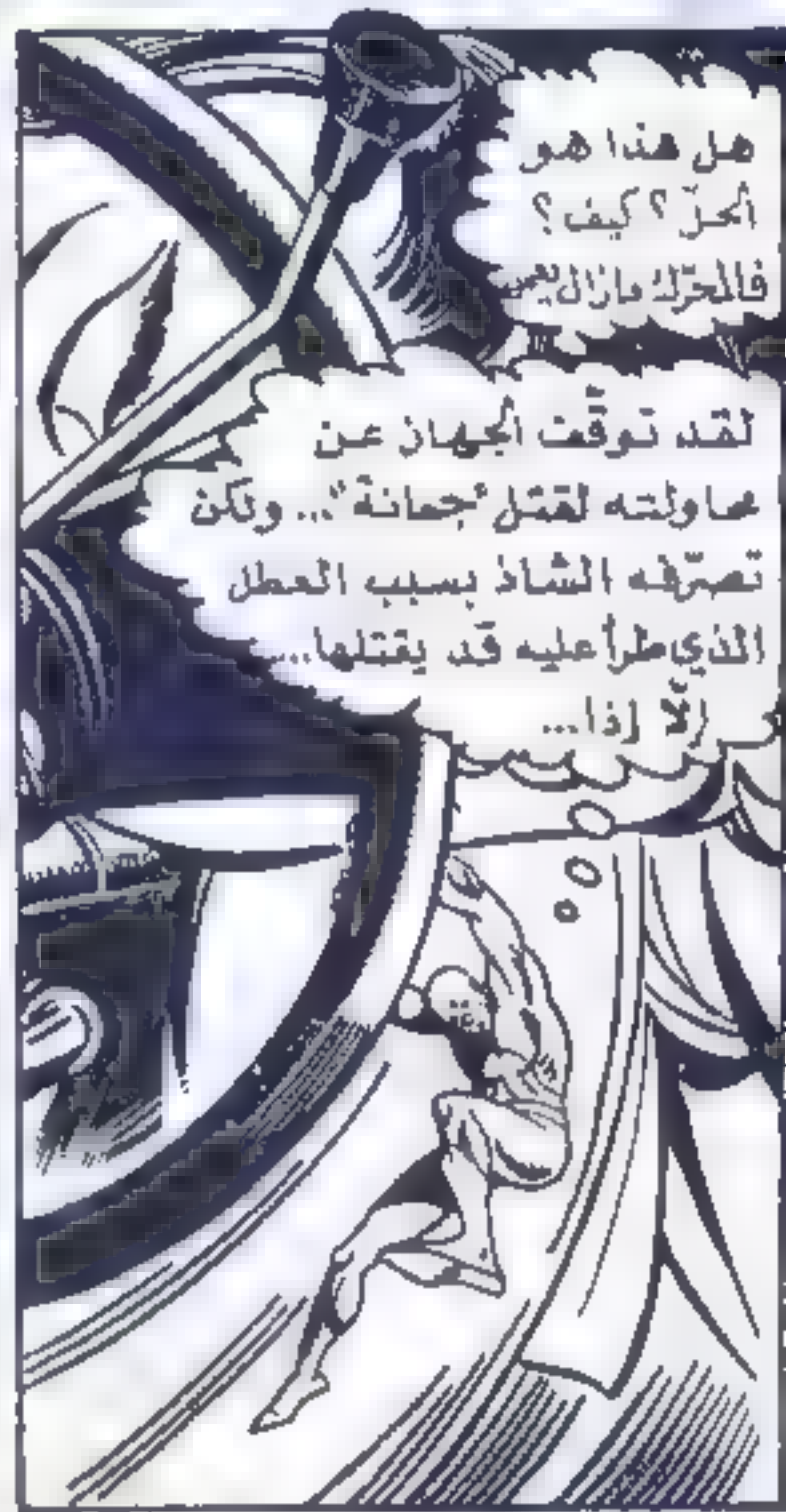 هل هذا هو
الحلّ؟ كيف؟
فالمحرّك مازال يعمل
لقد توقّف الجهاز عن
محاولته لقتل "جمانة"... ولكن
تصرّفه الشاذ بسبب العطل
الذي طرأ عليه قد يقتلها...
إلّا إذا...